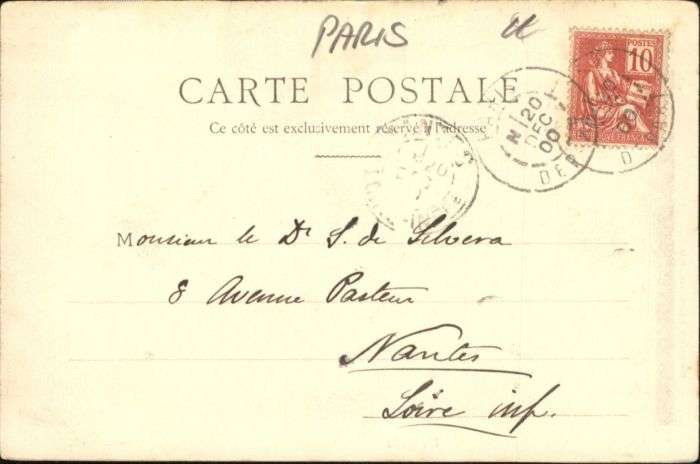 PARIS
POSTES
10
CARTE POSTALE
20
DEC
00
Ce côté est exclusivement réservé à l'adresse
Monsieur le Dr S. de Silvera
8 Avenue Pasteur
Nantes
Loire inf.